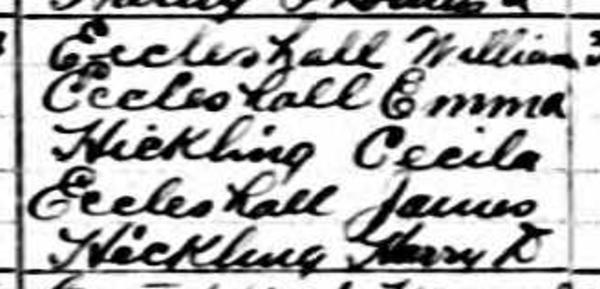 Eccleshall William
Eccleshall Emma
Hickling Cecila
Eccleshall James
Hickling Harry D